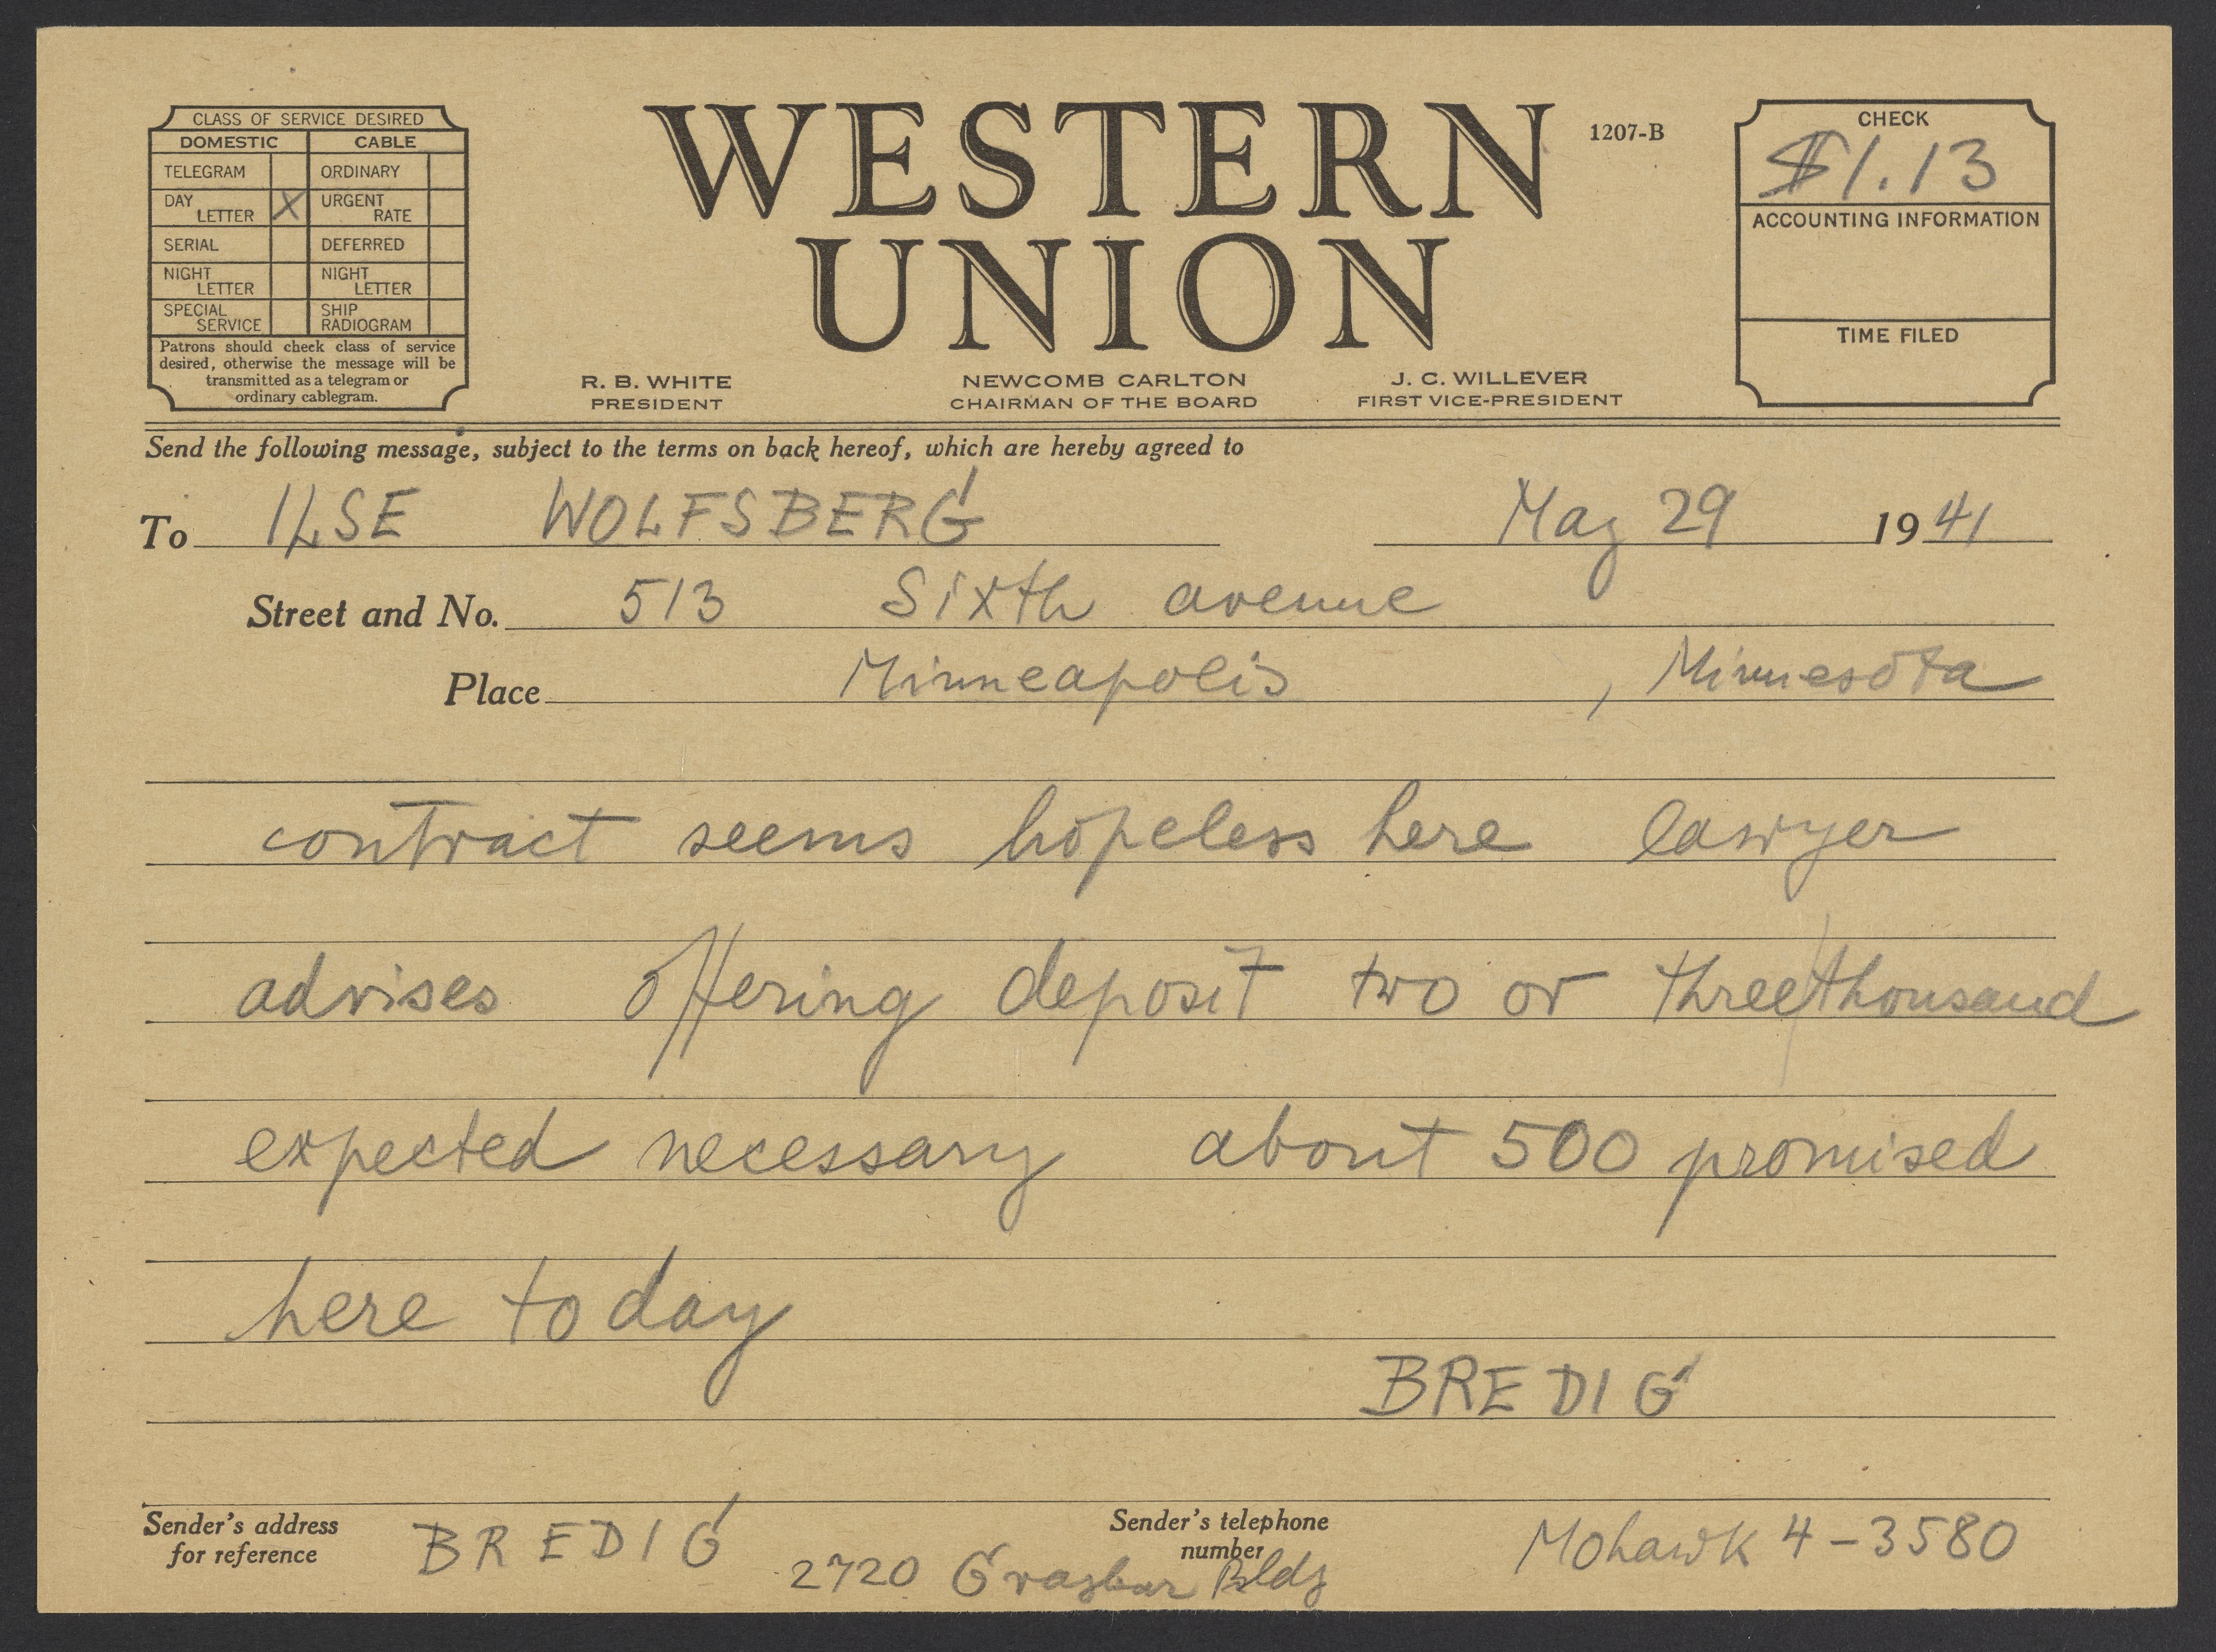 CLASS OF SERVICE DESIRED
DOMESTIC CABLE
TELEGRAM ORDINARY
DAY LETTER X URGENT RATE
SERIAL DEFERRED
NIGHT LETTER NIGHT LETTER
SPECIAL SERVICE SHIP RADIOGRAM
Patrons should check class of service
desired, otherwise the message will be
transmitted as a telegram or
ordinary cablegram.
WESTERN
UNION
1207-B
R. B. WHITE
PRESIDENT
NEWCOMB CARLTON
CHAIRMAN OF THE BOARD
J. C. WILLEVER
FIRST VICE-PRESIDENT
CHECK
$1.13
ACCOUNTING INFORMATION
TIME FILED
Send the following message, subject to the terms on back hereof, which are hereby agreed to
To ILSE WOLFSBERG May 29 1941
Street and No. 513 Sixth avenue
Place Minneapolis, Minnesota
contract seems hopeless here lawyer
advises offering deposit two or three/thousand
expected necessary about 500 promised
here today
BREDIG
Sender's address
for reference
BREDIG
2720 Graybar Bldg
Sender's telephone
number
Mohawk 4-3580